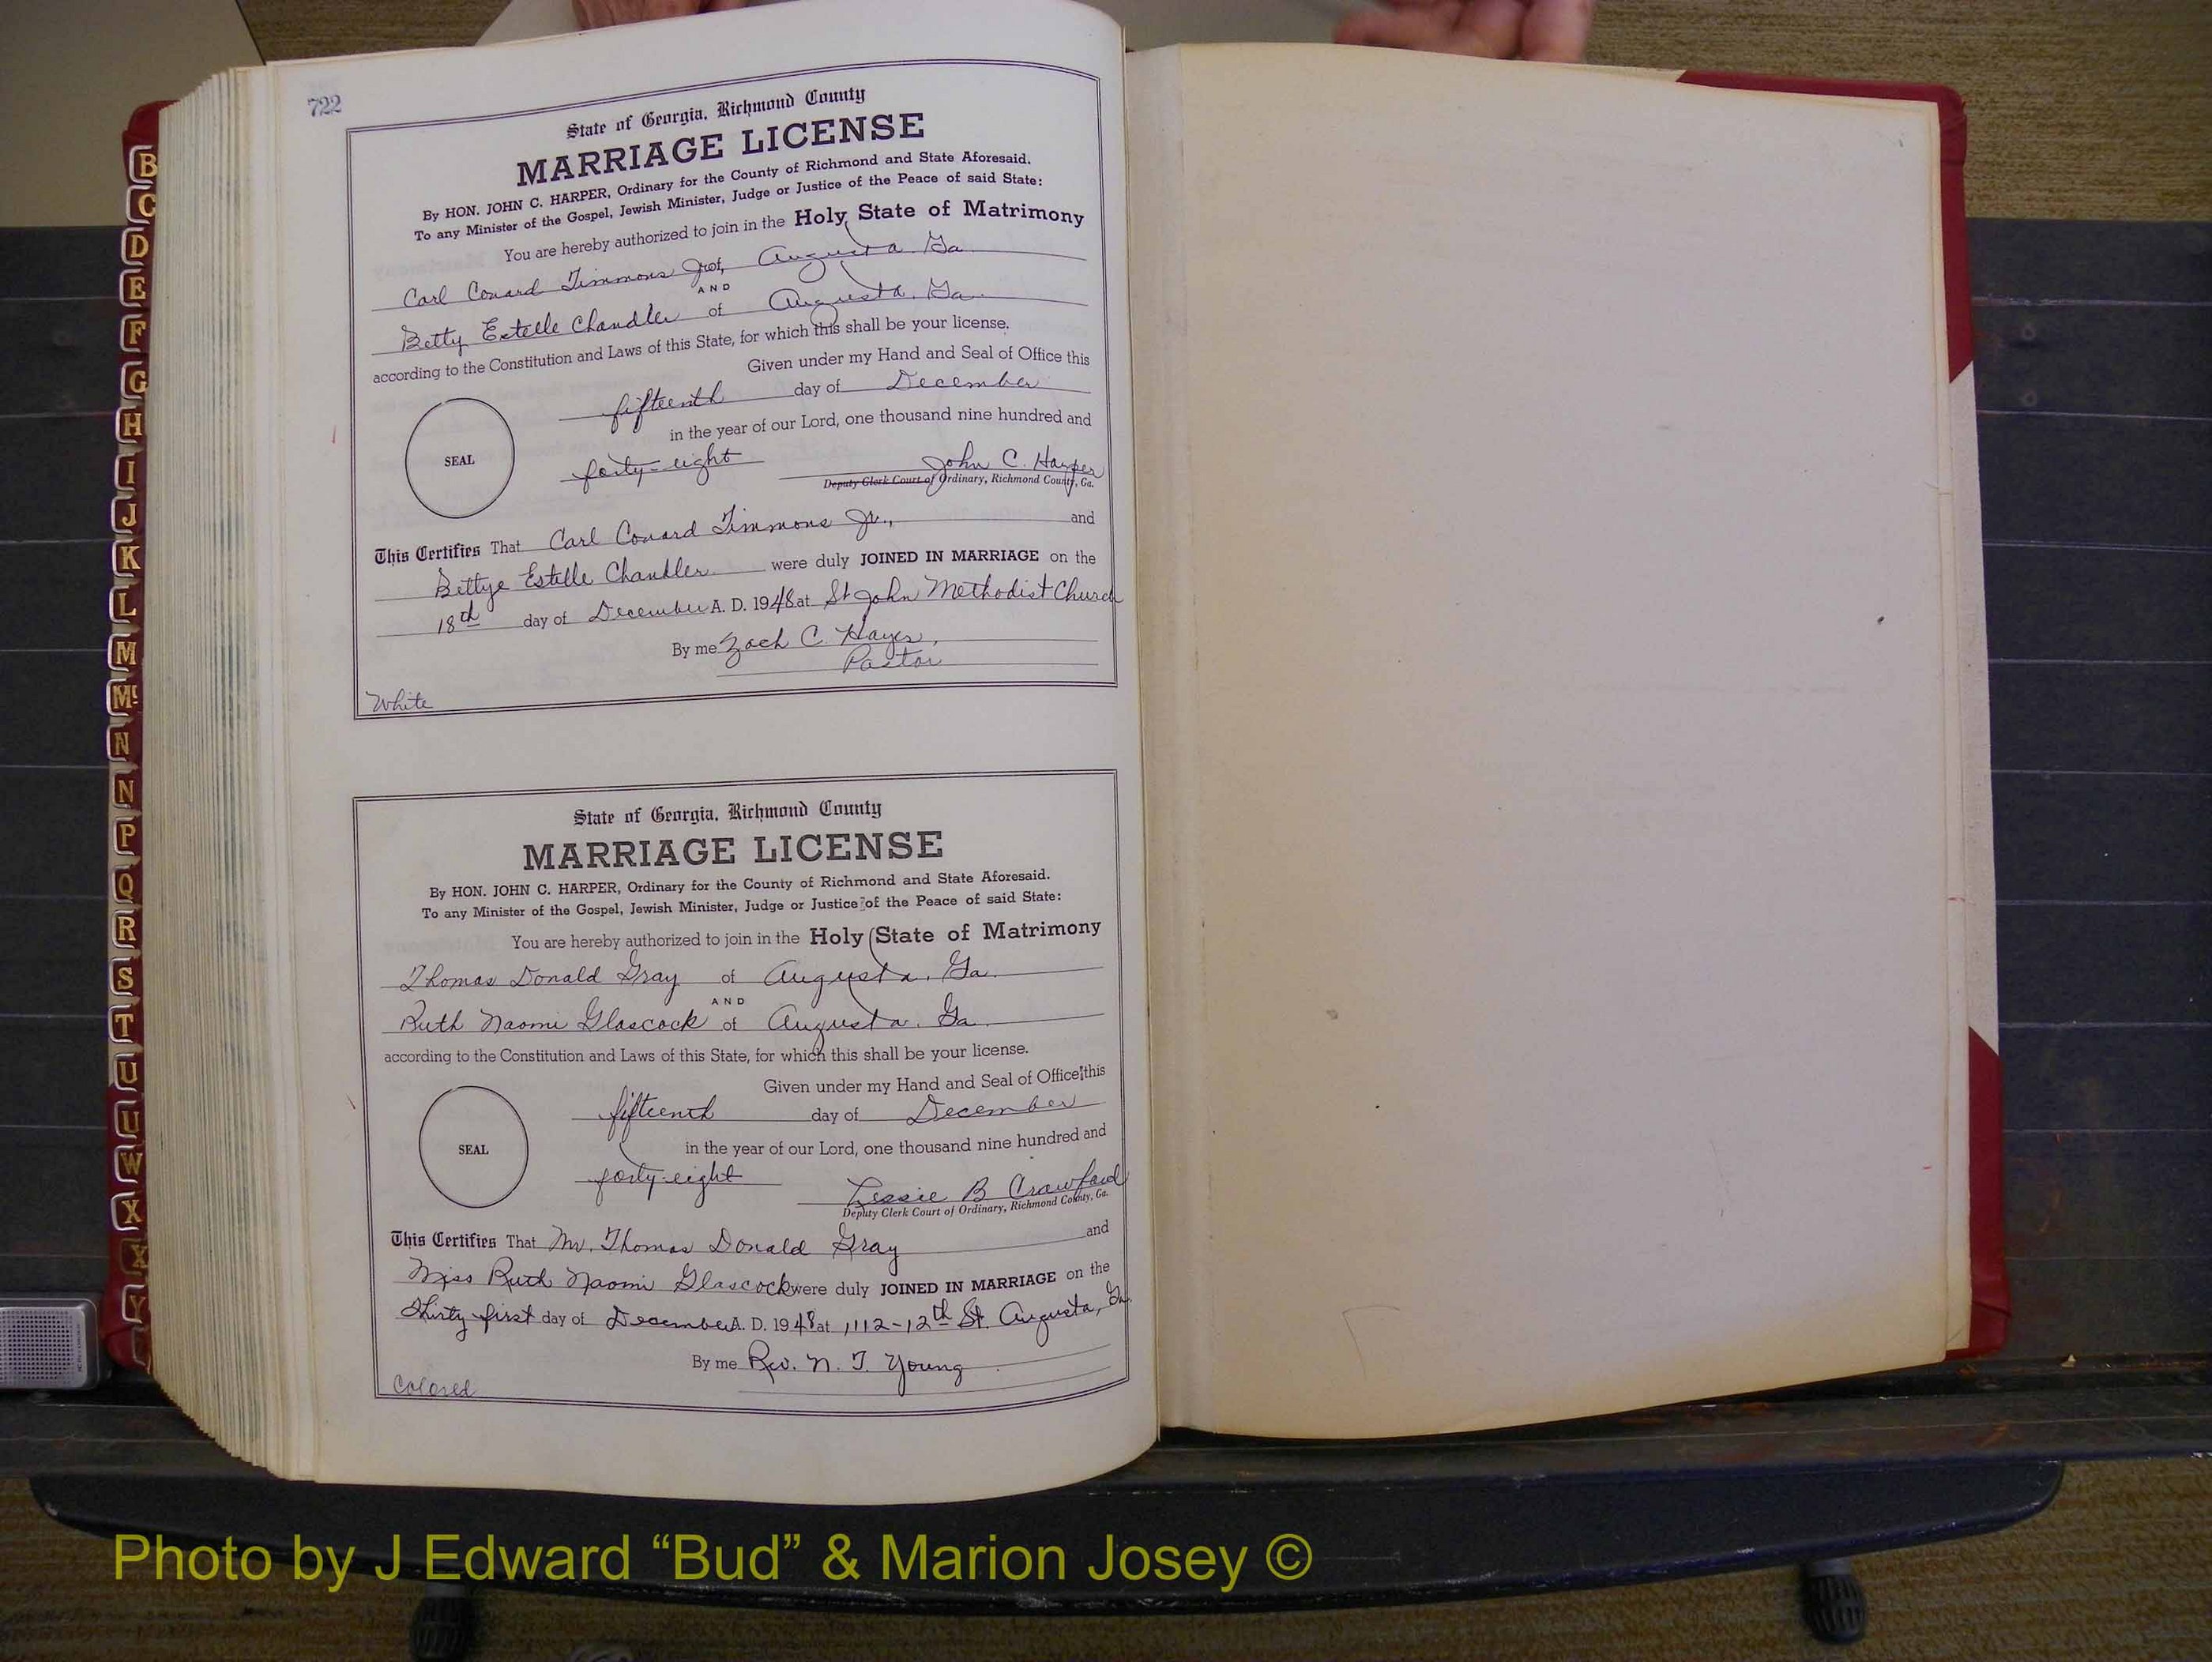 722
State of Georgia, Richmond County
MARRIAGE LICENSE
By HON. JOHN C. HARPER, Ordinary for the County of Richmond and State Aforesaid.
To any Minister of the Gospel, Jewish Minister, Judge or Justice of the Peace of said State:
You are hereby authorized to join in the Holy State of Matrimony
Carl Conard Timmons Jr of, Augusta Ga
AND
Betty Estelle Chandler of Augusta, Ga.
according to the Constitution and Laws of this State, for which this shall be your license.
Given under my Hand and Seal of Office this
fifteenth day of December
in the year of our Lord, one thousand nine hundred and
SEAL
forty-eight John C. Harper
Deputy Clerk Court of Ordinary, Richmond County, Ga.
This Certifies That Carl Conard Timmons Jr., and
Bettye Estelle Chandler were duly JOINED IN MARRIAGE on the
18th day of December A. D. 1948 at St John Methodist Church
By me Zach C. Hayes,
Pastor
White
State of Georgia, Richmond County
MARRIAGE LICENSE
By HON. JOHN C. HARPER, Ordinary for the County of Richmond and State Aforesaid.
To any Minister of the Gospel, Jewish Minister, Judge or Justice of the Peace of said State:
You are hereby authorized to join in the Holy State of Matrimony
Thomas Donald Gray of Augusta, Ga.
AND
Ruth Naomi Glascock of Augusta, Ga.
according to the Constitution and Laws of this State, for which this shall be your license.
Given under my Hand and Seal of Office this
fifteenth day of December
in the year of our Lord, one thousand nine hundred and
SEAL
forty-eight Lessie B Crawford
Deputy Clerk Court of Ordinary, Richmond County, Ga.
This Certifies That Mr. Thomas Donald Gray and
Miss Ruth Naomi Glascock were duly JOINED IN MARRIAGE on the
Thirty-first day of December A. D. 1948 at 1112-12th St. Augusta, Ga.
By me Rev. N. T. Young
Colored
B
C
D
E
F
G
H
I
J
K
L
M
Mc
N
N
P
Q
R
S
T
U
U
W
X
X
Y
Photo by J Edward “Bud” & Marion Josey ©